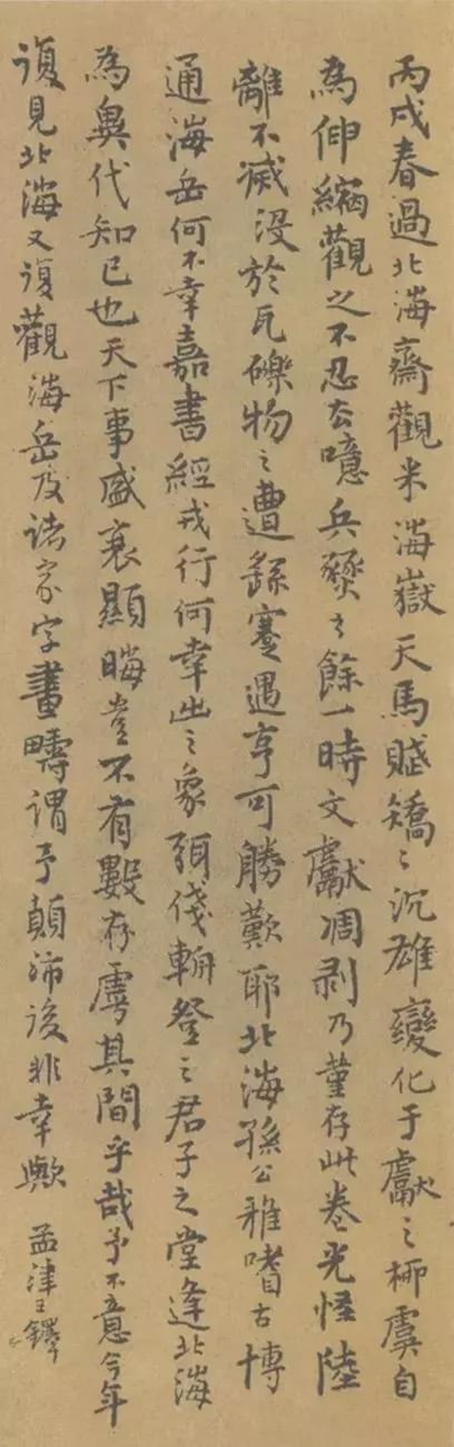 丙戌春過北海齋觀米海嶽天馬賦矯〻沉雄變化于獻之柳虞自
為伸縮觀之不忍去噫兵燹之餘一時文獻凋剥乃堇存此卷光怪陸
離不滅没於瓦礫物之遭繇蹇遇亨可勝歎耶北海孫公雅嗜古博
通海岳何不幸嘉書經戎行何幸出之象弭俴輈登之君子之堂逢北海
為異代知已也天下事盛衰顯晦豈不有數存虖其間乎哉予不意今年
復見北海又復觀海岳及諸家字畫疇謂予顛沛後非幸歟 孟津王鐸